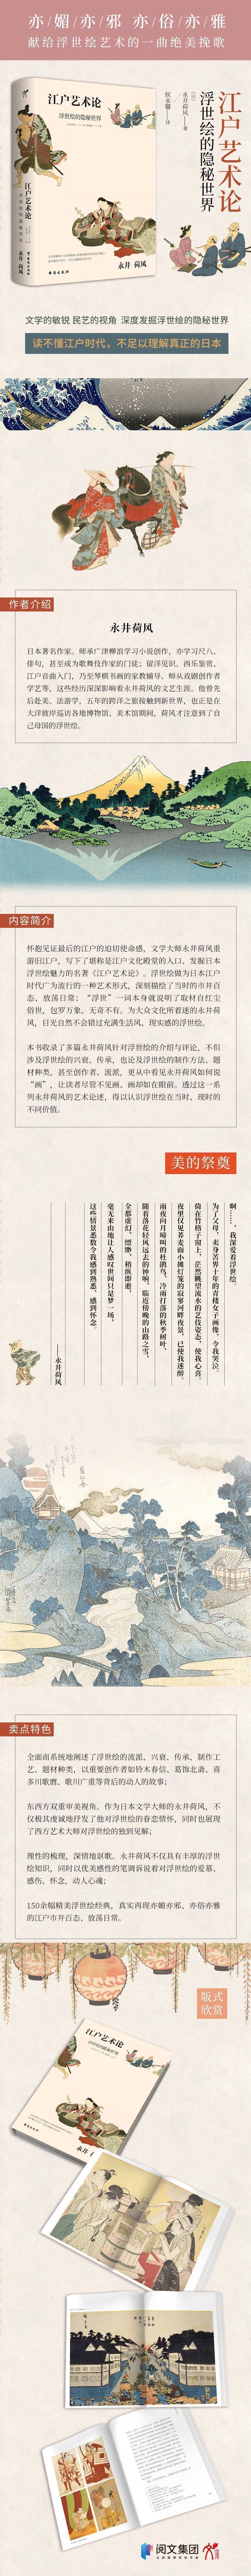 亦/媚/亦/邪 亦/俗/亦/雅
献给浮世绘艺术的一曲绝美挽歌
江户艺术论
浮世绘的隐秘世界
永井 荷风
江户艺术论
浮世绘的隐秘世界
〔日〕永井荷风——著
侯永馨——译
文学的敏锐 民艺的视角 深度发掘浮世绘的隐秘世界
读不懂江户时代，不足以理解真正的日本
作者介绍
永井荷风
日本著名作家。师承广津柳浪学习小说创作，亦学习尺八、
俳句，甚至成为歌舞伎作家的门徒；留浮见识、西乐鉴赏、
江户音曲入门，乃至琴棋书画的家教辅导，师从戏剧创作者
学艺等，这些经历深深影响着永井荷风的文艺生涯。他曾先
后赴美、法游学，五年的跨洋之旅接触到新世界，也正是在
大洋彼岸巡访各地博物馆、美术馆期间，荷风才注意到了自
己母国的浮世绘。
内容简介
怀抱见证最后的江户的迫切使命感，文学大师永井荷风重
游旧江户，写下了堪称是江户文化殿堂的入口、发掘日本
浮世绘魅力的名著《江户艺术论》。浮世绘做为日本江户
时代广为流行的一种艺术形式，深刻描绘了当时的市井百
态、放荡日常；“浮世”一词本身就说明了取材自红尘
俗世，包罗万象、无奇不有。为大众文化所着迷的永井荷
风，目光自然不会错过充满生活风、现实感的浮世绘。
本书收录了多篇永井荷风针对浮世绘的介绍与评论，不但
涉及浮世绘的兴衰、传承，也论及浮世绘的制作方法、题
材种类，甚至创作者、流派，更从中看见永井荷风如何说
“画”，让读者尽管不见画、画却如在眼前。透过这一系
列永井荷风的艺术论述，得以认识浮世绘在当时、现时的
不同价值。
美的祭奠
啊……，我深爱着浮世绘。
为了父母，卖身苦界十年的青楼女子画像，令我哭泣。
倚在竹格子窗上，茫然眺望流水的艺伎姿态，使我心喜。
夜里仅见荞麦面小摊灯笼的寂寥河畔夜景，已使我迷醉。
雨夜向月啼叫的杜鹃鸟，冷雨打落的秋季树叶，
随着落花轻风远去的钟响，临近傍晚的山路之雪，
全都虚幻、缥缈、稍纵即逝，
毫无来由地让人感叹世间只是梦一场，
这些情景悉数令我感到熟悉、感到怀念。
——永井荷风
卖点特色
全面而系统地阐述了浮世绘的流派、兴衰、传承、制作工
艺、题材种类，以重要创作者如铃木春信、葛饰北斋、喜
多川歌磨、歌川广重等背后的动人的故事；
东西方双重审美视角。作为日本文学大师的永井荷风，不
仅极其虔诚地抒发了他对浮世绘的眷恋情怀，同时也展现
了西方艺术大师对浮世绘的独到见解；
理性的梳理，深情地讴歌。永井荷风不仅具有丰厚的浮世
绘知识，同时以优美感性的笔调诉说着对浮世绘的爱慕、
感伤、怀念，动人心魂；
150余幅精美浮世绘经典，真实再现亦媚亦邪、亦俗亦雅
的江户市井百态、放荡日常。
版式
欣赏
江户艺术论
浮世绘的隐秘世界
阅文集团